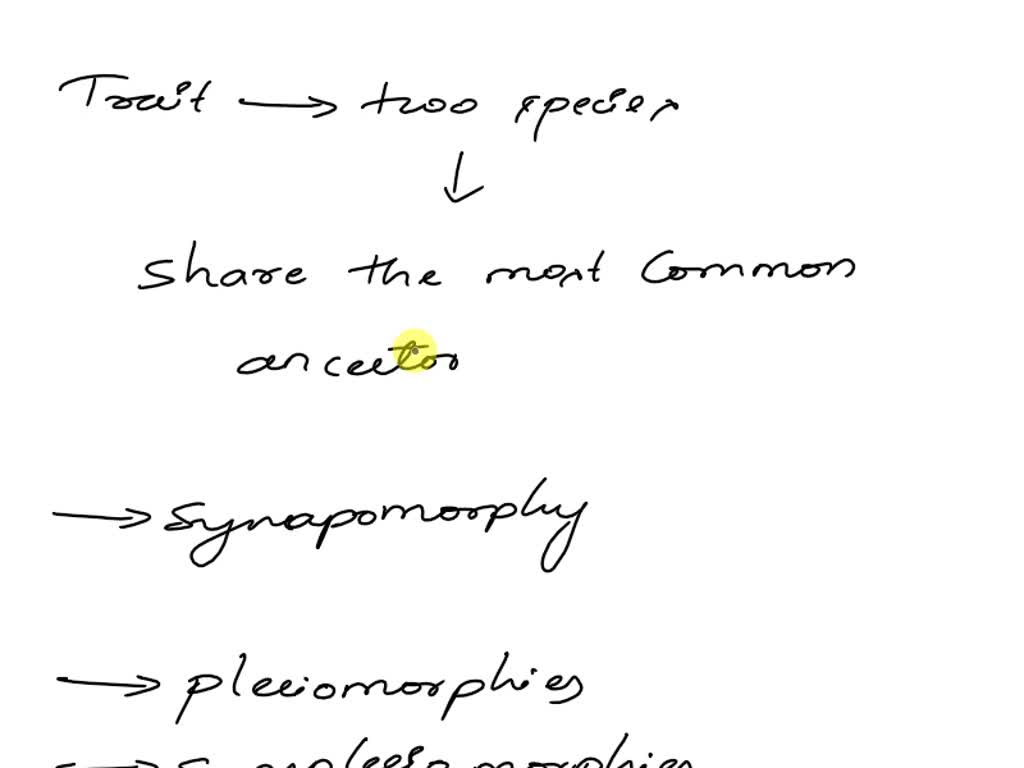 Trait → two species
↓
Share the most Common
ancestor
→ Synapomorphy
→ plesiomorphies